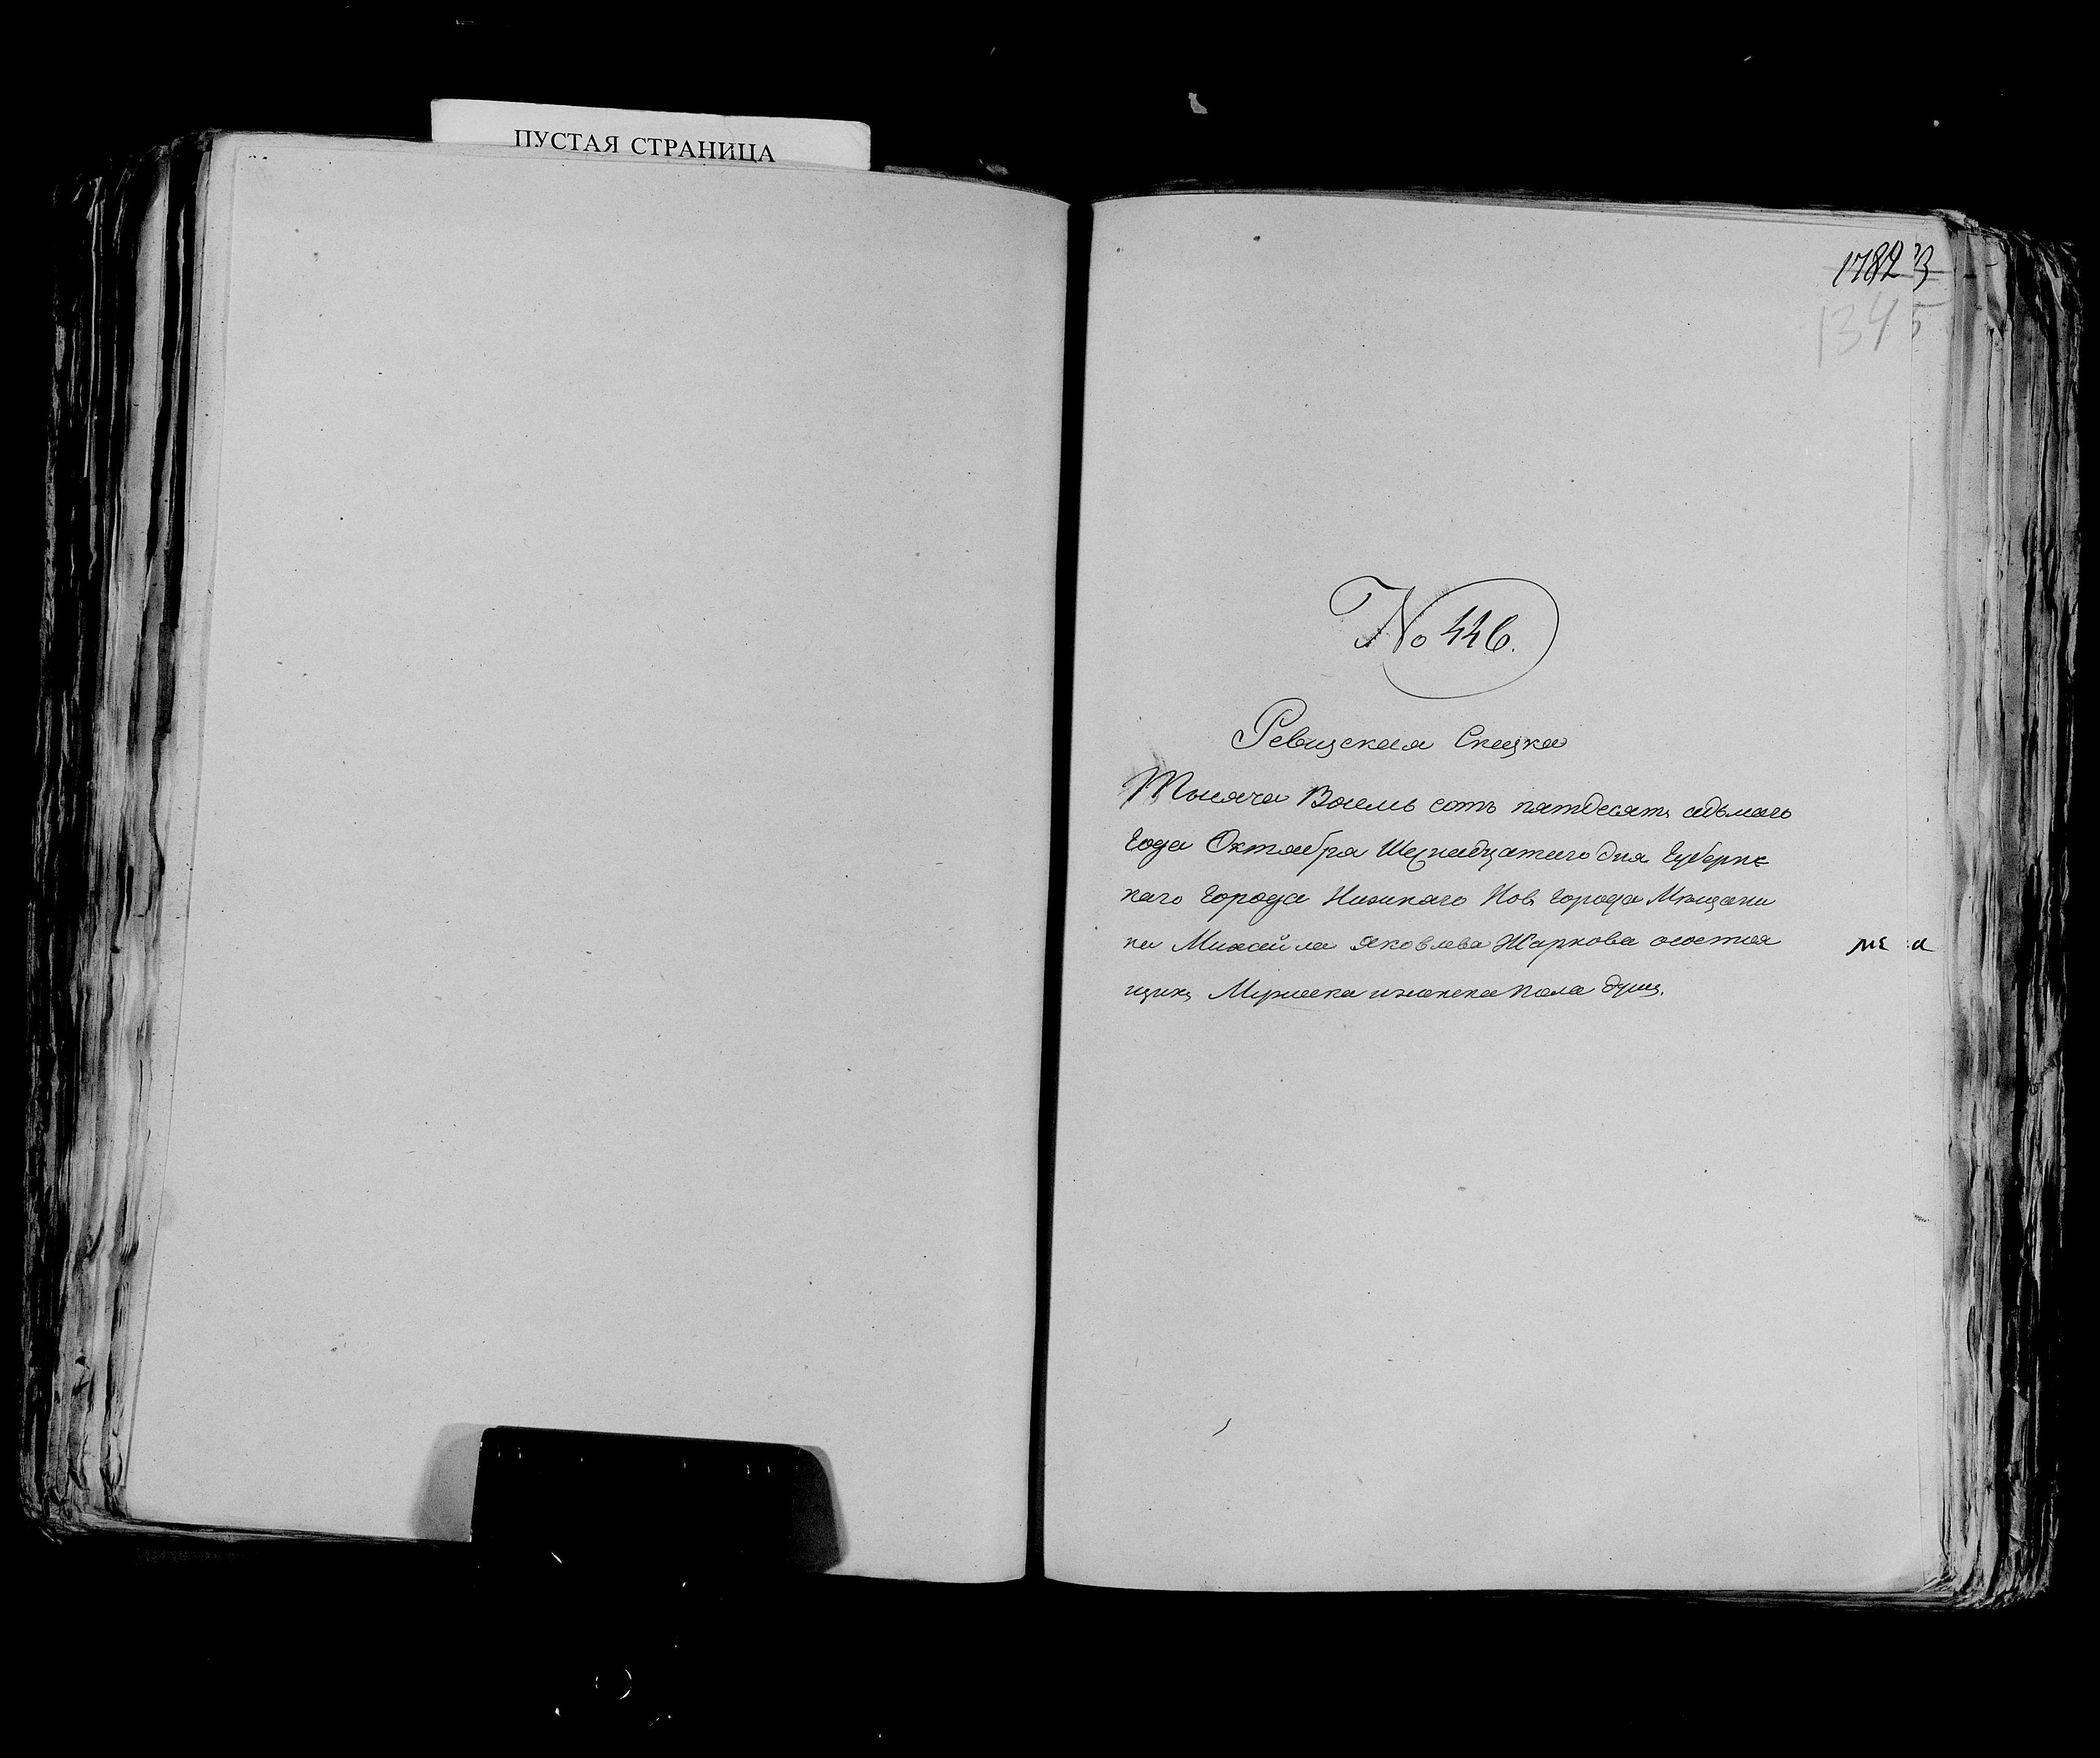 ПУСТАЯ СТРАНИЦА
1782
134
№ 446.
Ревизская Сказка
Тысяча Восемь сотъ пятдесятъ седьмаго
Года Октября Шеснадцатаго дня Губернс
каго Города Нижняго Нов города Мѣщани
на Михайла Яковлева Жаркова осостоя
щихъ Мужеска иженска пола душ.